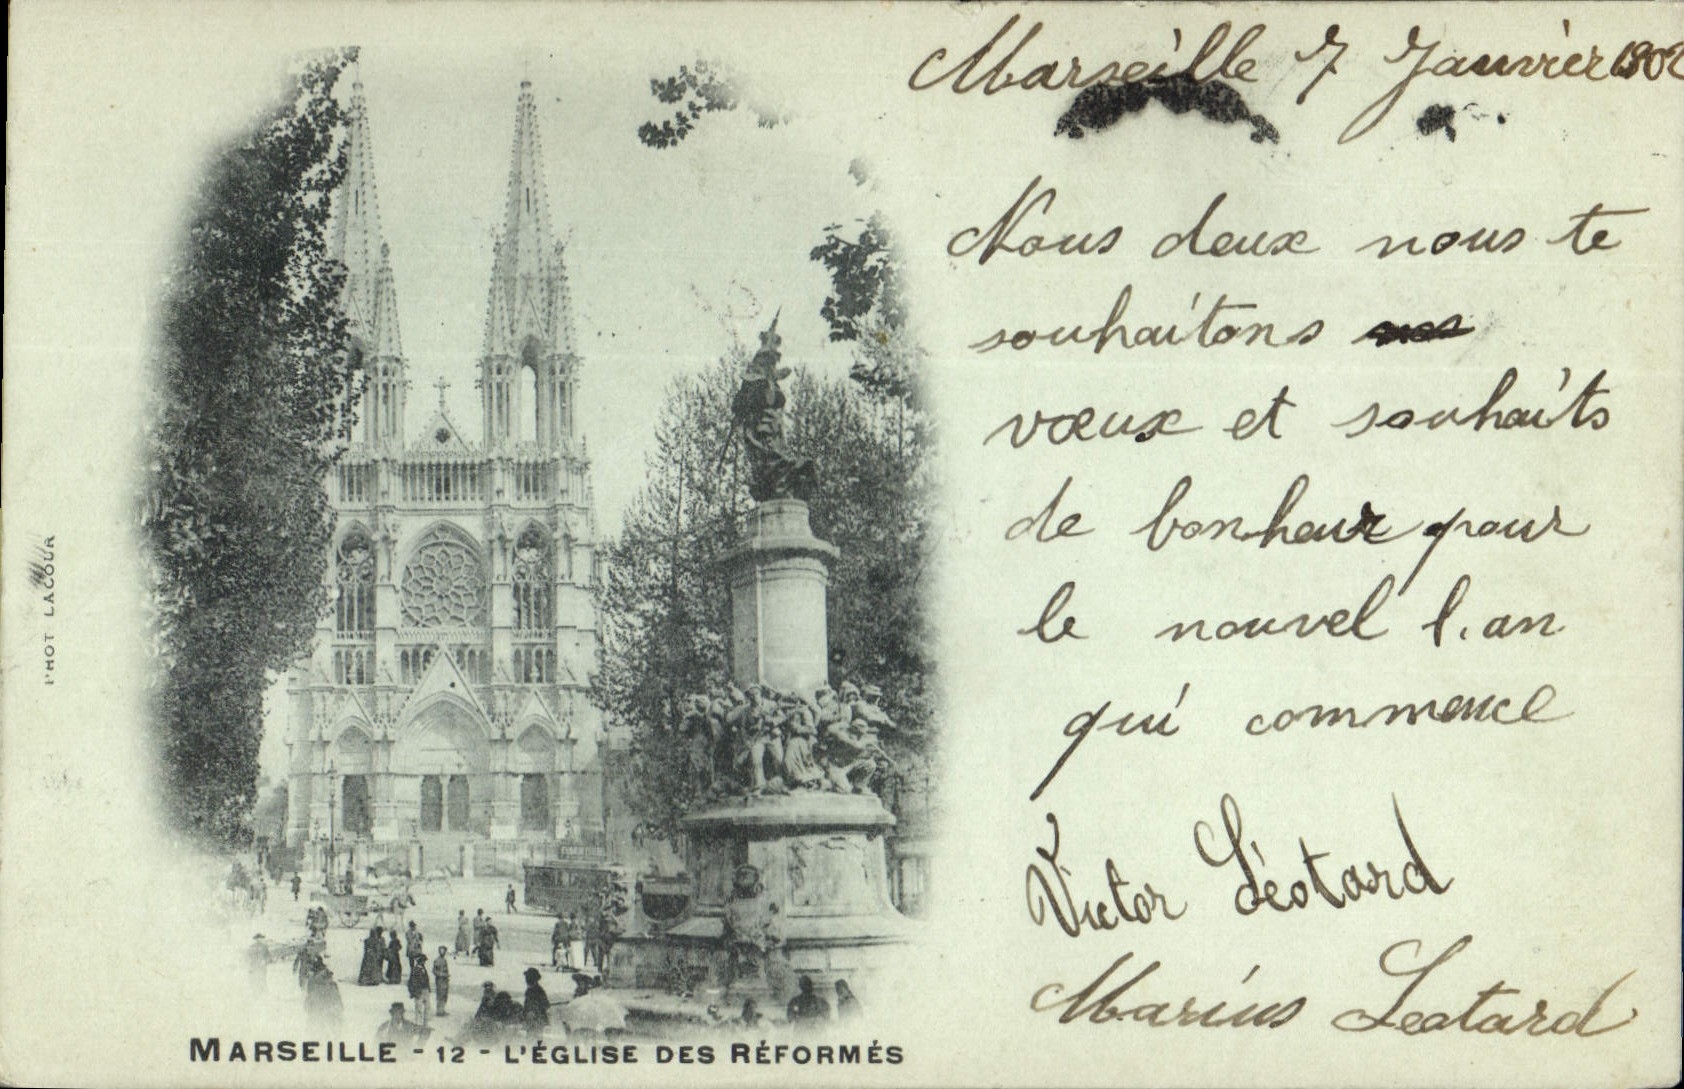 Marseille 7 Janvier 1902
Nous deux nous te
souhaitons
vœux et souhaits
de bonheur pour
le nouvel l.an
qui commence
Victor Léotard
Marius Leotard
PHOT LACOUR
MARSEILLE - 12 - L'ÉGLISE DES RÉFORMÉS